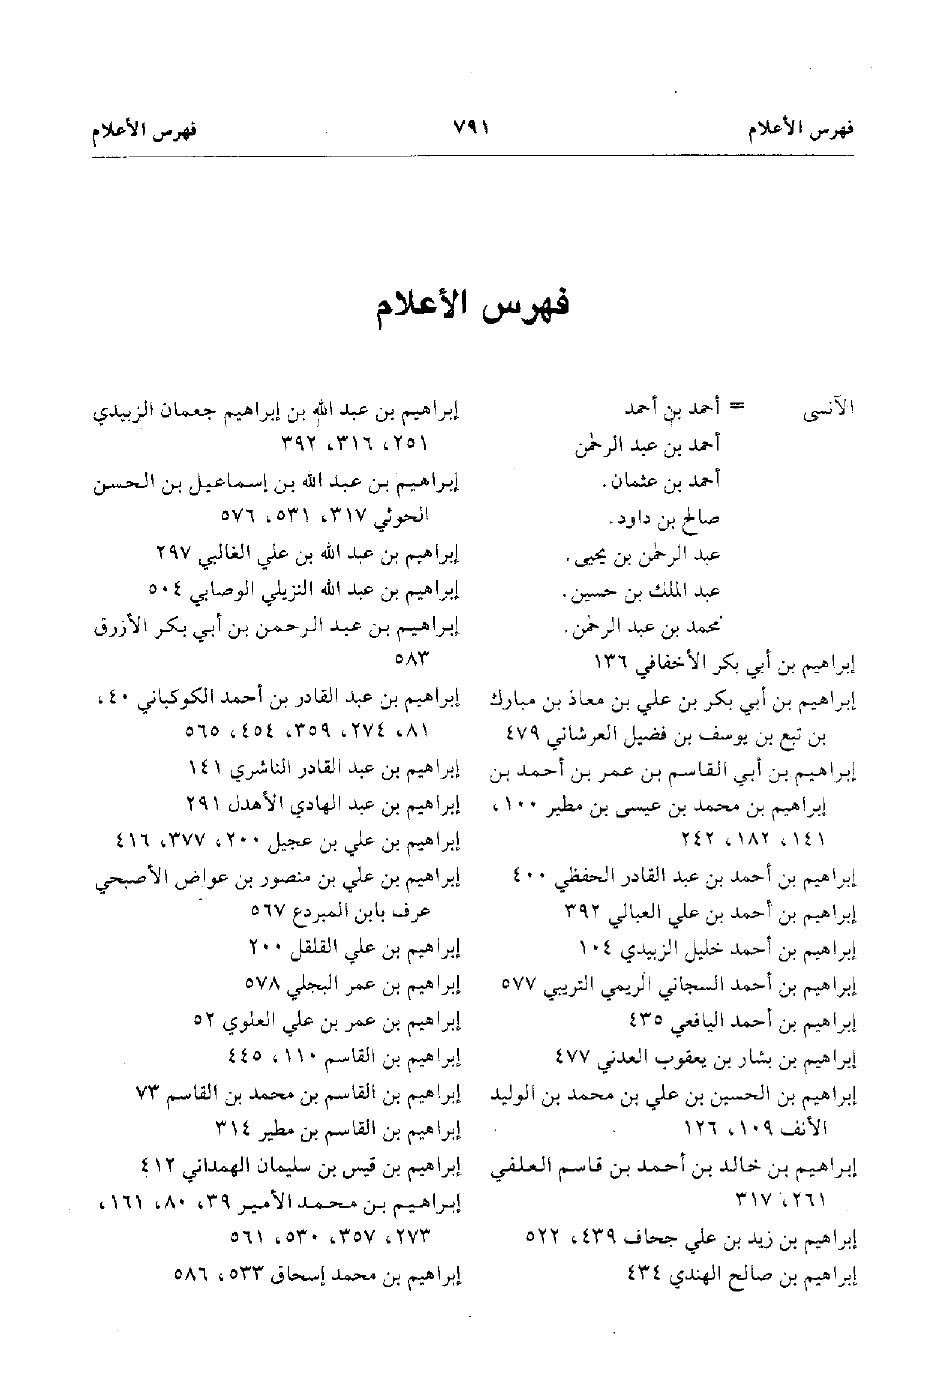 فهرس الأعلام ٧٩١ فهرس الأعلام
فهرس الأعلام
الآنسى = أحمد بن أحمد
أحمد بن عبد الرحمٰن
أحمد بن عثمان.
صالح بن داود.
عبد الرحمٰن بن يحيى.
عبد الملك بن حسين.
محمد بن عبد الرحمٰن.
إبراهيم بن أبي بكر الأخفافي ١٣٦
إبراهيم بن أبي بكر بن علي بن معاذ بن مبارك
بن تبع بن يوسف بن فضيل العرشاني ٤٧٩
إبراهيم بن أبي القاسم بن عمر بن أحمد بن
إبراهيم بن محمد بن عيسى بن مطير ١٠٠،
١٤١، ١٨٢، ٢٤٢
إبراهيم بن أحمد بن عبد القادر الحفظي ٤٠٠
إبراهيم بن أحمد بن علي العبالي ٣٩٢
إبراهيم بن أحمد خليل الزبيدي ١٠٤
إبراهيم بن أحمد السجاني الريمي التريبي ٥٧٧
إبراهيم بن أحمد اليافعي ٤٣٥
إبراهيم بن بشار بن يعقوب العدني ٤٧٧
إبراهيم بن الحسين بن علي بن محمد بن الوليد
الأنف ١٠٩، ١٢٦
إبراهيم بن خالد بن أحمد بن قاسم العلفي
٢٦١، ٣١٧
إبراهيم بن زيد بن علي جحاف ٤٣٩، ٥٢٢
إبراهيم بن صالح الهندي ٤٣٤
إبراهيم بن عبد الله بن إبراهيم جعمان الزبيدي
٢٥١، ٣١٦، ٣٩٢
إبراهيم بن عبد الله بن إسماعيل بن الحسن
الحوثي ٣١٧، ٥٣١، ٥٧٦
إبراهيم بن عبد الله بن علي الغالبي ٢٩٧
إبراهيم بن عبد الله النزيلي الوصابي ٥٠٤
إبراهيم بن عبد الرحمن بن أبي بكر الأزرق
٥٨٣
إبراهيم بن عبد القادر بن أحمد الكوكباني ٤٠،
٨١، ٢٧٤، ٣٥٩، ٤٥٤، ٥٦٥
إبراهيم بن عبد القادر الناشري ١٤١
إبراهيم بن عبد الهادي الأهدل ٢٩١
إبراهيم بن علي بن عجيل ٢٠٠، ٣٧٧، ٤١٦
إبراهيم بن علي بن منصور بن عواض الأصبحي
عرف بابن المبردع ٥٦٧
إبراهيم بن علي القلقل ٢٠٠
إبراهيم بن عمر البجلي ٥٧٨
إبراهيم بن عمر بن علي العلوي ٥٢
إبراهيم بن القاسم ١١٠، ٤٤٥
إبراهيم بن القاسم بن محمد بن القاسم ٧٣
إبراهيم بن القاسم بن مطير ٣١٤
إبراهيم بن قيس بن سليمان الهمداني ٤١٢
إبراهيم بن محمد الأمير ٣٩، ٨٠، ١٦١،
٢٧٣، ٣٥٧، ٥٣٠، ٥٦١
إبراهيم بن محمد إسحاق ٥٣٣، ٥٨٦